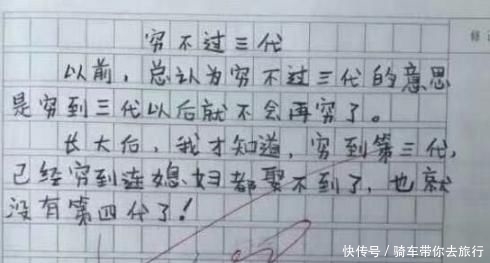 穷不过三代
以前，总认为穷不过三代的意思
是穷到三代以后就不会再穷了。
长大后，我才知道，穷到第三代，
已经穷到连媳妇都娶不到了，也就
没有第四代了！
快传号/骑车带你去旅行